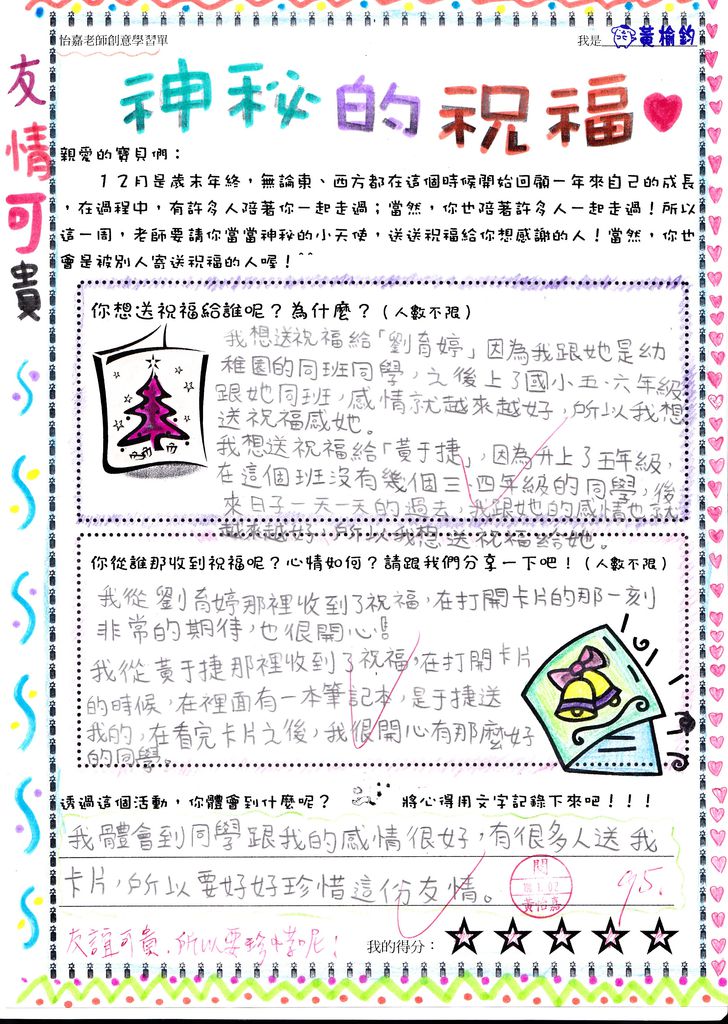 怡嘉老師創意學習單
我是 黃榆鈞
友情可貴
神秘的祝福
親愛的寶貝們：
１２月是歲末年終，無論東、西方都在這個時候開始回顧一年來自己的成長
，在過程中，有許多人陪著你一起走過；當然，你也陪著許多人一起走過！所以
這一周，老師要請你當當神秘的小天使，送送祝福給你想感謝的人！當然，你也
會是被別人寄送祝福的人喔！^^
你想送祝福給誰呢？為什麼？（人數不限）
我想送祝福給「劉育婷」因為我跟她是幼
稚園的同班同學，之後上了國小五、六年級
跟她同班，感情就越來越好，所以我想
送祝福感她。
我想送祝福給「黃于捷」，因為升上了五年級，
在這個班沒有幾個三、四年級的同學，後
來日子一天一天的過去，我跟她的感情也就
越來越好，所以我想送祝福給她。
你從誰那收到祝福呢？心情如何？請跟我們分享一下吧！（人數不限）
我從劉育婷那裡收到了祝福，在打開卡片的那一刻
非常的期待，也很開心！
我從黃于捷那裡收到了祝福，在打開卡片
的時候，在裡面有一本筆記本，是于捷送
我的，在看完卡片之後，我很開心有那麼好
的同學。
透過這個活動，你體會到什麼呢？ 將心得用文字記錄下來吧！！！
我體會到同學跟我的感情很好，有很多人送我
卡片，所以要好好珍惜這份友情。
閱
黃怡嘉
95.
友誼可貴，所以要珍惜呢！
我的得分：